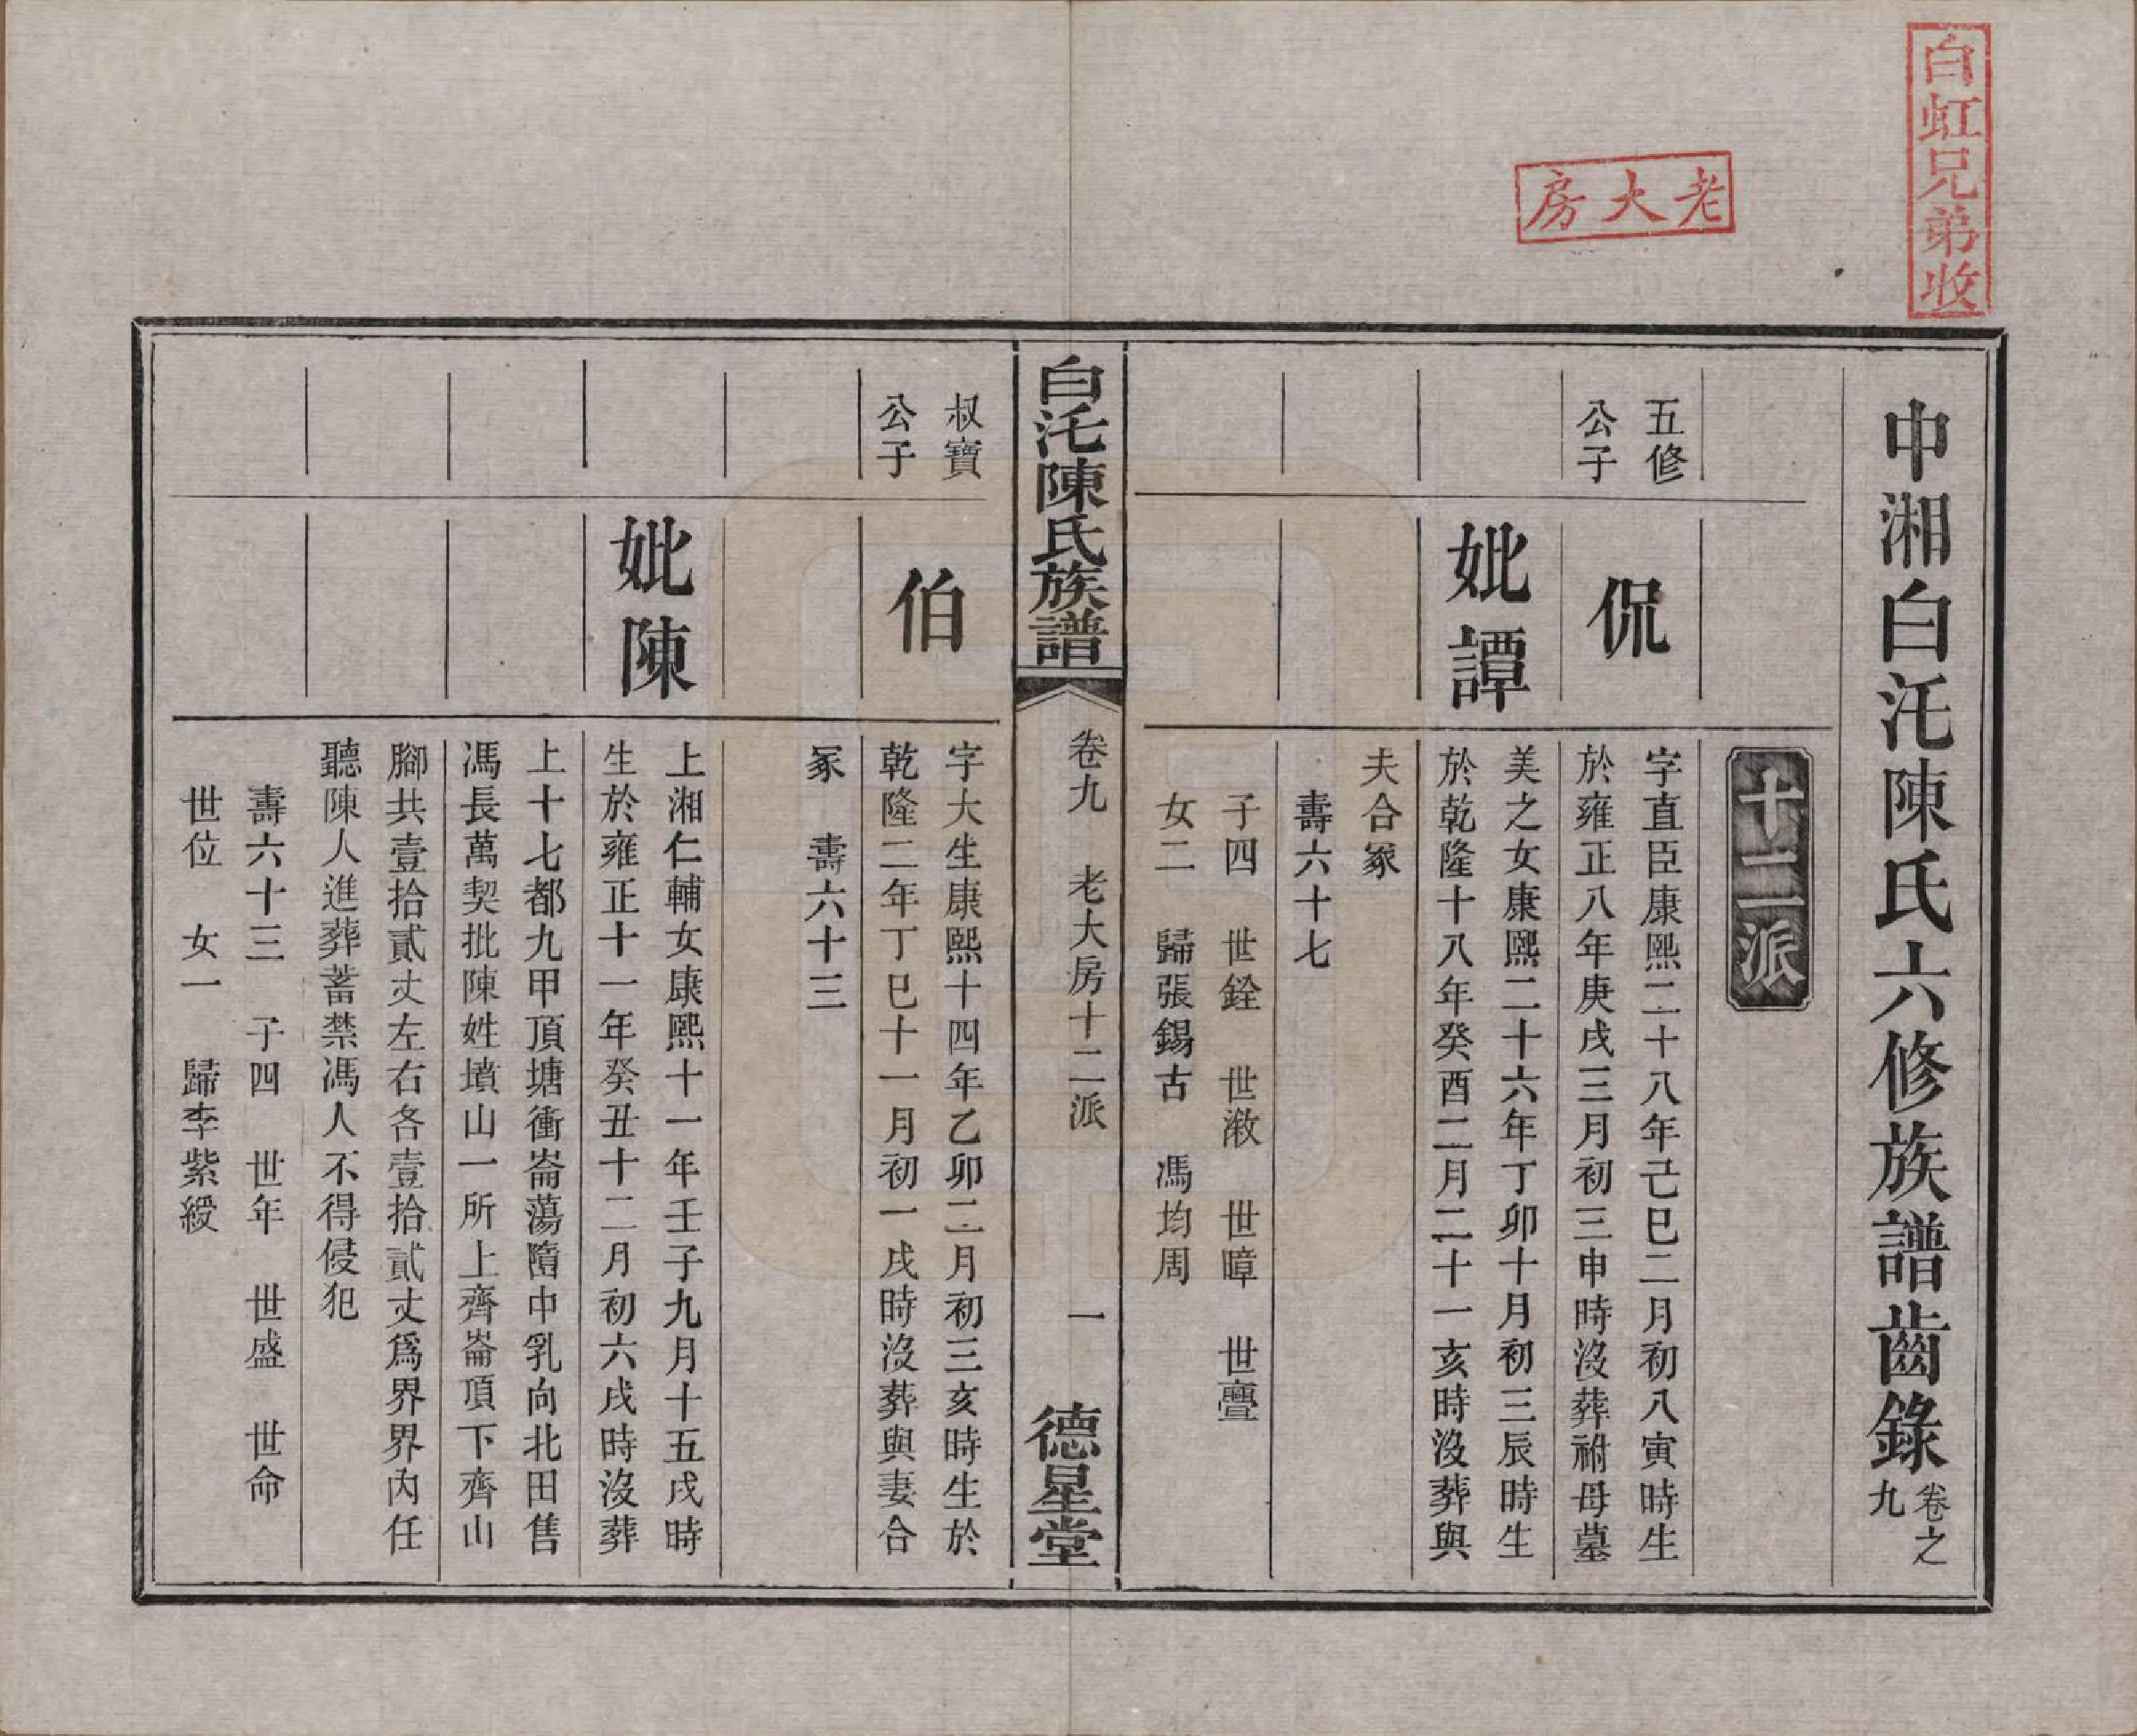 白虹兄弟收
老大房
中湘白汑陳氏六修族譜齒錄卷之九
十二派
五修公子
侃
字直臣康熙二十八年己巳二月初八寅時生
於雍正八年庚戌三月初三申時沒葬祔母墓
妣譚
美之女康熙二十六年丁卯十月初三辰時生
於乾隆十八年癸酉二月二十一亥時沒葬與
夫合冢
壽六十七
子四 世銓 世漖 世暲 世亹
女二 歸張錫古 馮均周
白汑陳氏族譜
卷九 老大房十二派 一
德星堂
叔寶公子
伯
字大生康熙十四年乙卯二月初三亥時生於
乾隆二年丁巳十一月初一戌時沒葬與妻合
冢 壽六十三
妣陳
上湘仁輔女康熙十一年壬子九月十五戌時
生於雍正十一年癸丑十二月初六戌時沒葬
上十七都九甲頂塘衝崙蕩隋中乳向北田售
馮長萬契批陳姓墳山一所上齊崙項下齊山
腳共壹拾貳丈左右各壹拾貳丈爲界界內任
聽陳人進葬蓄禁馮人不得侵犯
壽六十三 子四 世年 世盛 世命
世位 女一 歸李紫綬